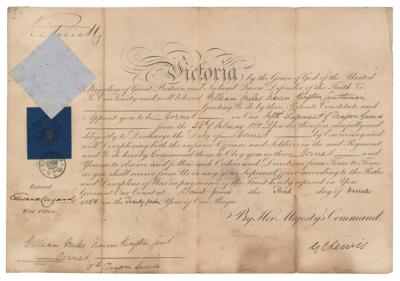 Victoria R
Victoria by the Grace of God of the United
Kingdom of Great Britain and Ireland Queen Defender of the Faith &c
To Our Trusty and well beloved William Miles Gentleman
Greeting We do by these Presents Constitute and
Appoint you to be Cornet in Our Fifth Regiment of Dragoon Guards
from the February You are therefore carefully and
diligently to Discharge the Duty of Cornet by Exercising and
well Disciplining both the inferior Officers and Soldiers in the said Regiment
and We do hereby Command them to Obey you as their Cornet and
You are to observe and follow such Orders and Directions from Time to Time
as you shall receive from Us or any your Superior Officer according to the Rules
and Discipline of War in pursuance of the Trust hereby reposed in You
Given at Our Court at Saint James's the day of March
in the Year of Our Reign
By Her Majesty's Command
Entered
War Office
William Miles Gent
Cornet
5th Dragoon Guards